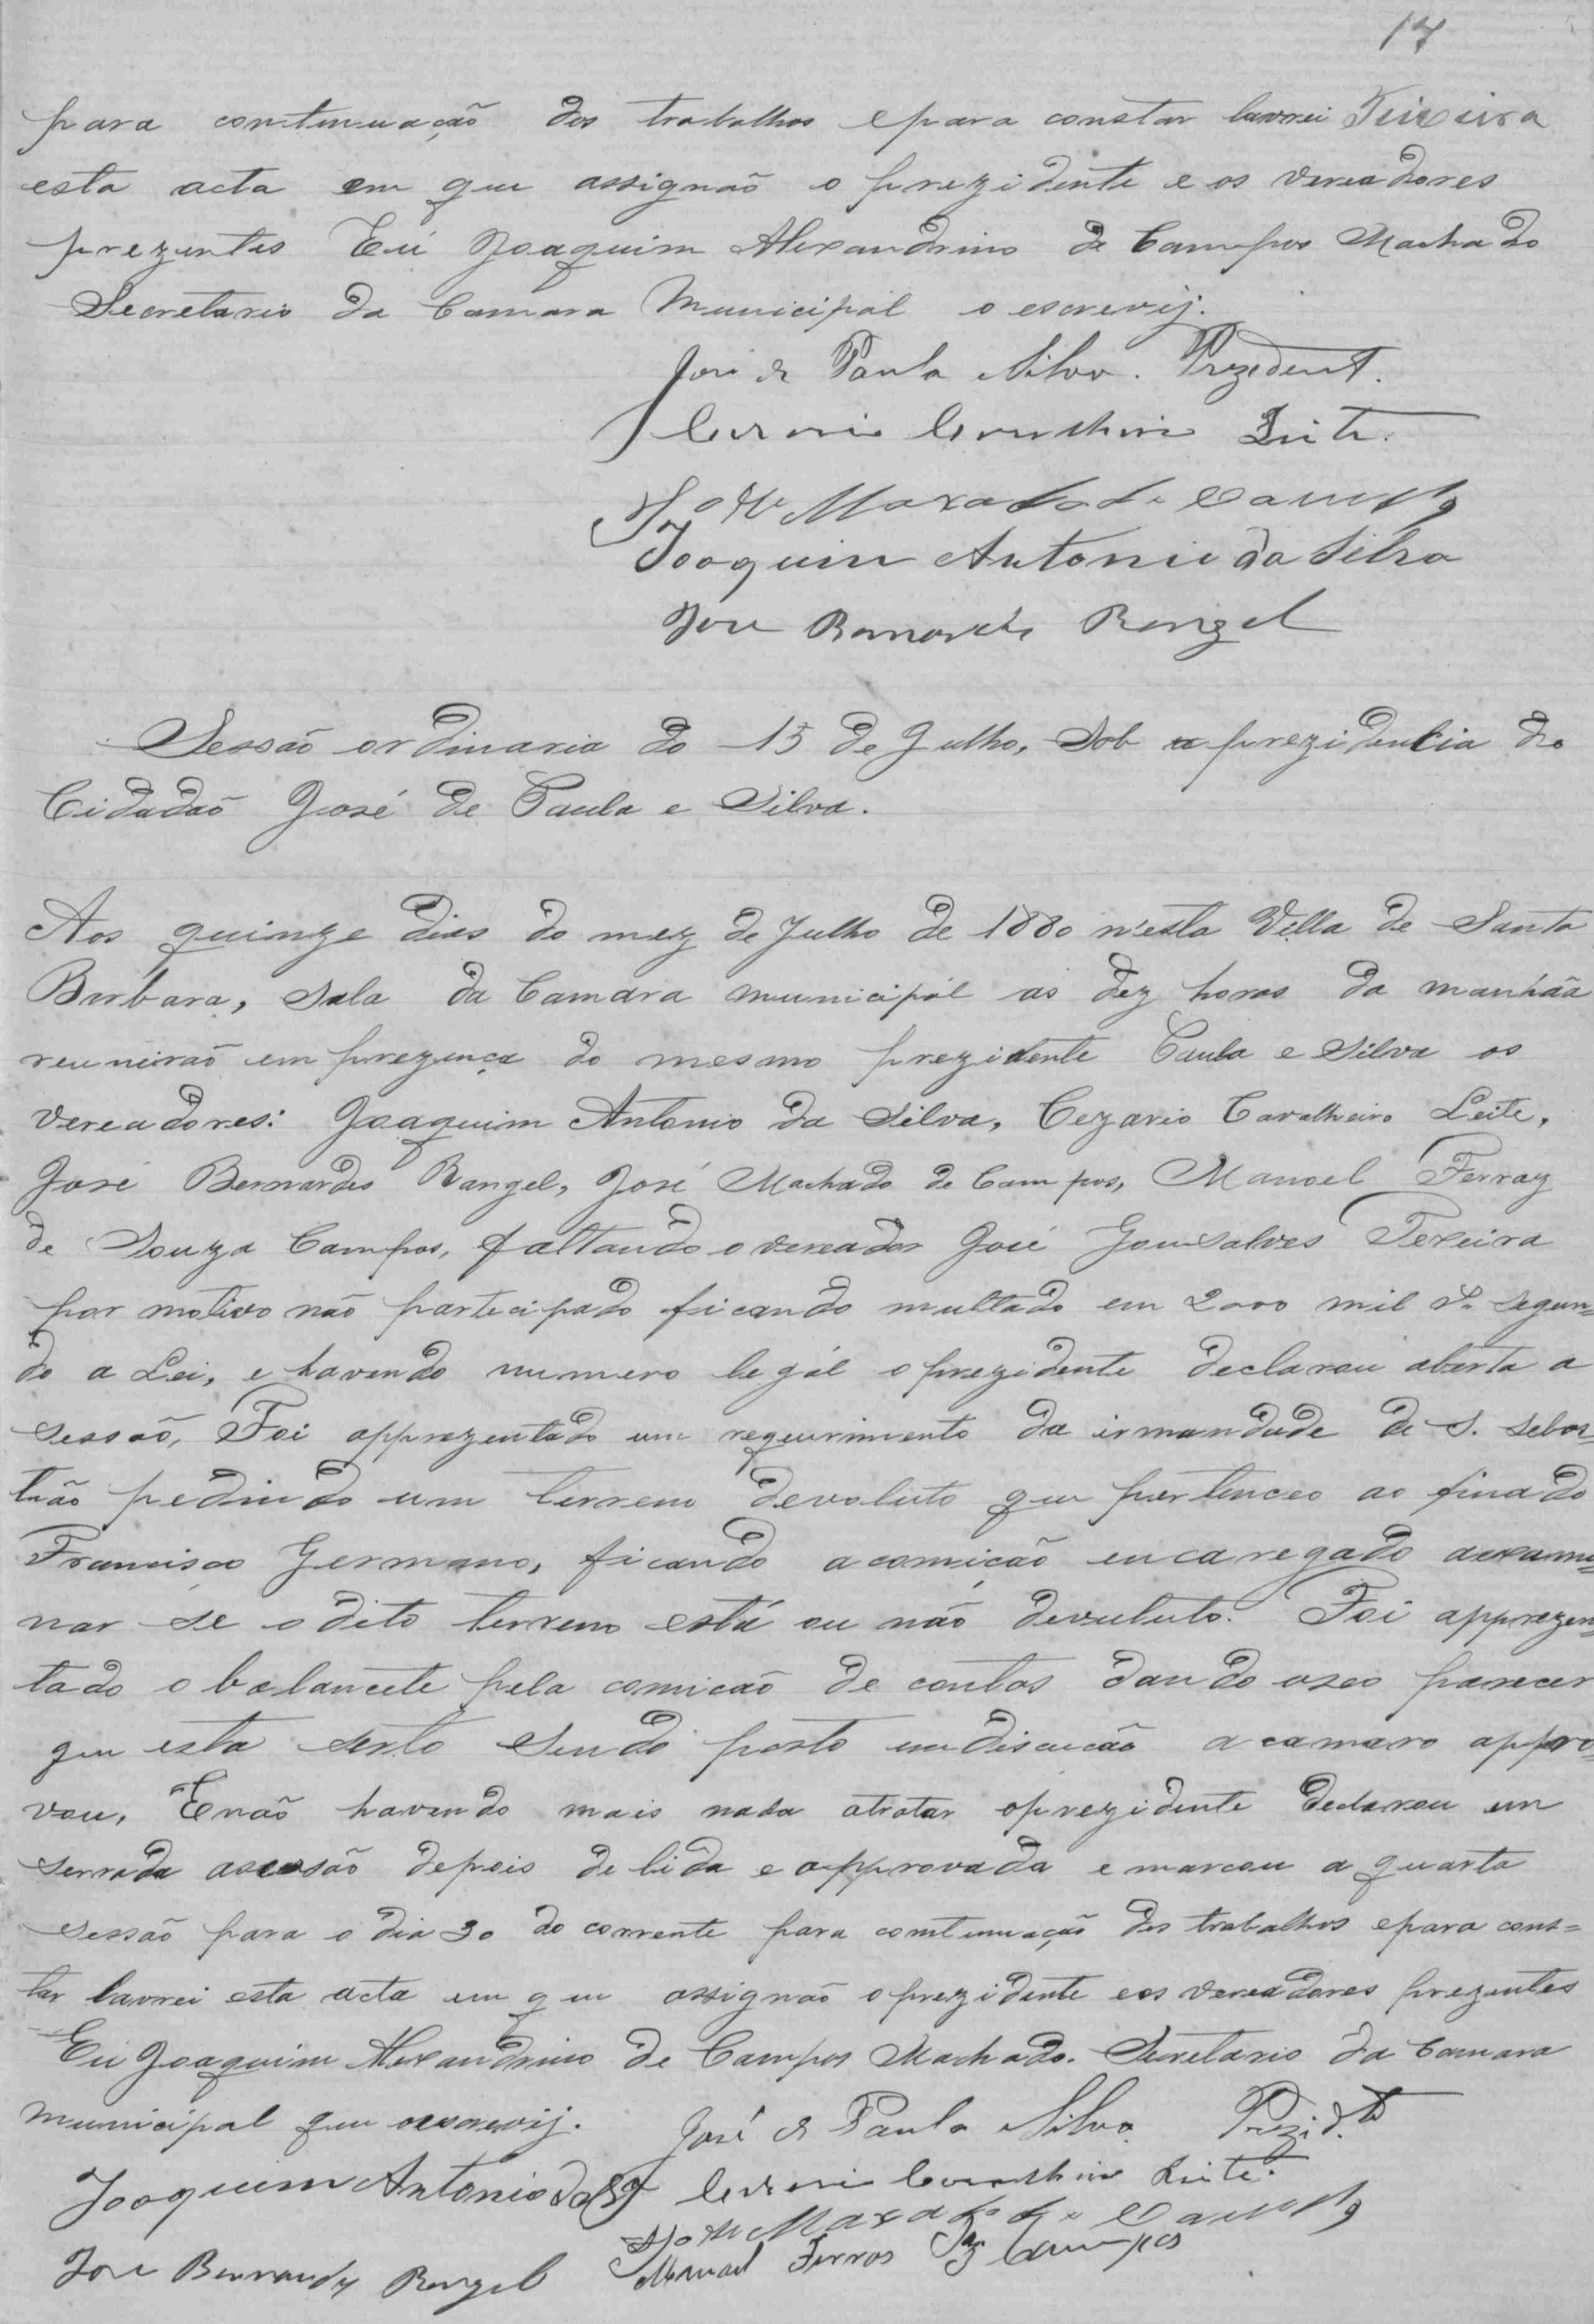 17
para continuação dos trabalhos epara constar lavrei Teixeira
esta acta em que assignaõ o prezidente e os vereadores
prezentes Eú Joaquim Alexandrino de Campos Machado
Secretario da Camara Municipál o escrevij.
José de Paula e Silva. Prezident.
Cezario Cavalheiro Leite.
José Maxado de Campos
Joaquim Antonio da Silva
José Bernardes Rangel
Sessaõ ordinaria do 15 de Julho, Sob a prezidencia do
Cidadaõ José de Paula e Silva.
Aos quinze dias do mez de Julho de 1880 n'esta Villa de Santa
Barbara, Sala da Camara municipál as dez horas da manhãa
reuniraõ em prezença do mesmo prezidente Paula e Silva os
vereadores: Joaquim Antonio da Silva, Cezario Cavalheiro Leite,
José Bernardes Rangel, José Machado de Campos, Manoel Ferraz
de Souza Campos, faltando o vereador José Gonsalves Texeira
por motivo não participado ficando multado em 2000 mil rs segun=
do a Lei, e havendo numero legál o prezidente declarou aberta a
sessaõ, Foi apprezentado um requirimento da irmandade de S. Sebas=
tião pedindo um terreno devoluto que pertenceo ao finado
Francisco Germano, ficando acomição encaregado aexami=
nar se o dito terreno está ou não devuluto. Foi apprezen=
tado o balancete pela comicaõ de contas dando oseo parecer
que esta serto sendo posto emdiscucão a camara appro=
vou, Enaõ havendo mais nada atratar oprezidente declarou en
serrada asessão depois de lida e approvada e marcou a quarta
sessão para o dia 30 do corrente para continuação dos trabalhos epara cons=
tar lavrei esta acta em que assignaõ oprezidente eos vereadores prezentes
Eu Joaquim Alexandrino de Campos Machado. Secretario da Camara
municipal que oescrevij.
José de Paula e Silva. Prezid.te
Joaquim Antonio da Sa
Cezario Cavalheiro Leite.
José Maxado de Campos
José Bernardes Rangel
Manoel Ferras Sz Campos